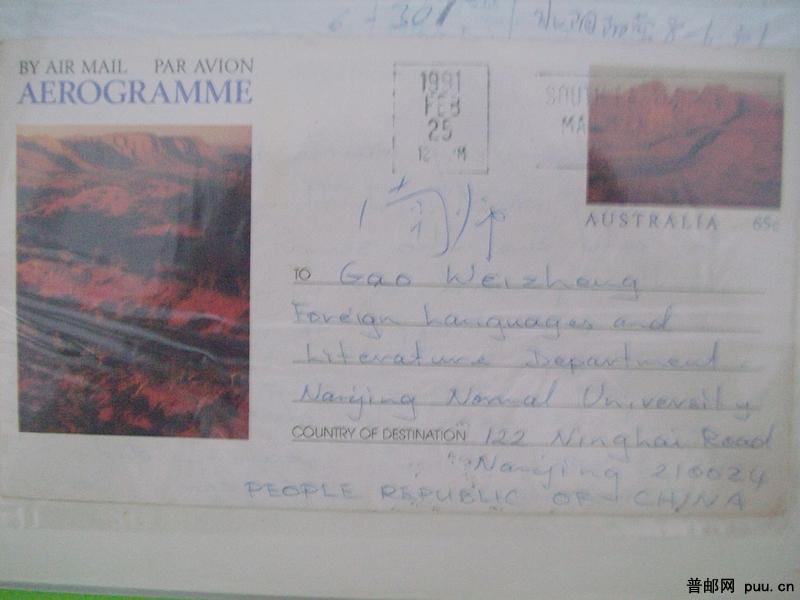 BY AIR MAIL PAR AVION
AEROGRAMME
1991
FEB
25
AUSTRALIA 65c
TO Gao Weizheng
Foreign Languages and
Literature Department.
Nanjing Normal University
COUNTRY OF DESTINATION 122 Ninghai Road
Nanjing 210024
PEOPLE REPUBLIC OF CHINA
普邮网 puu.cn